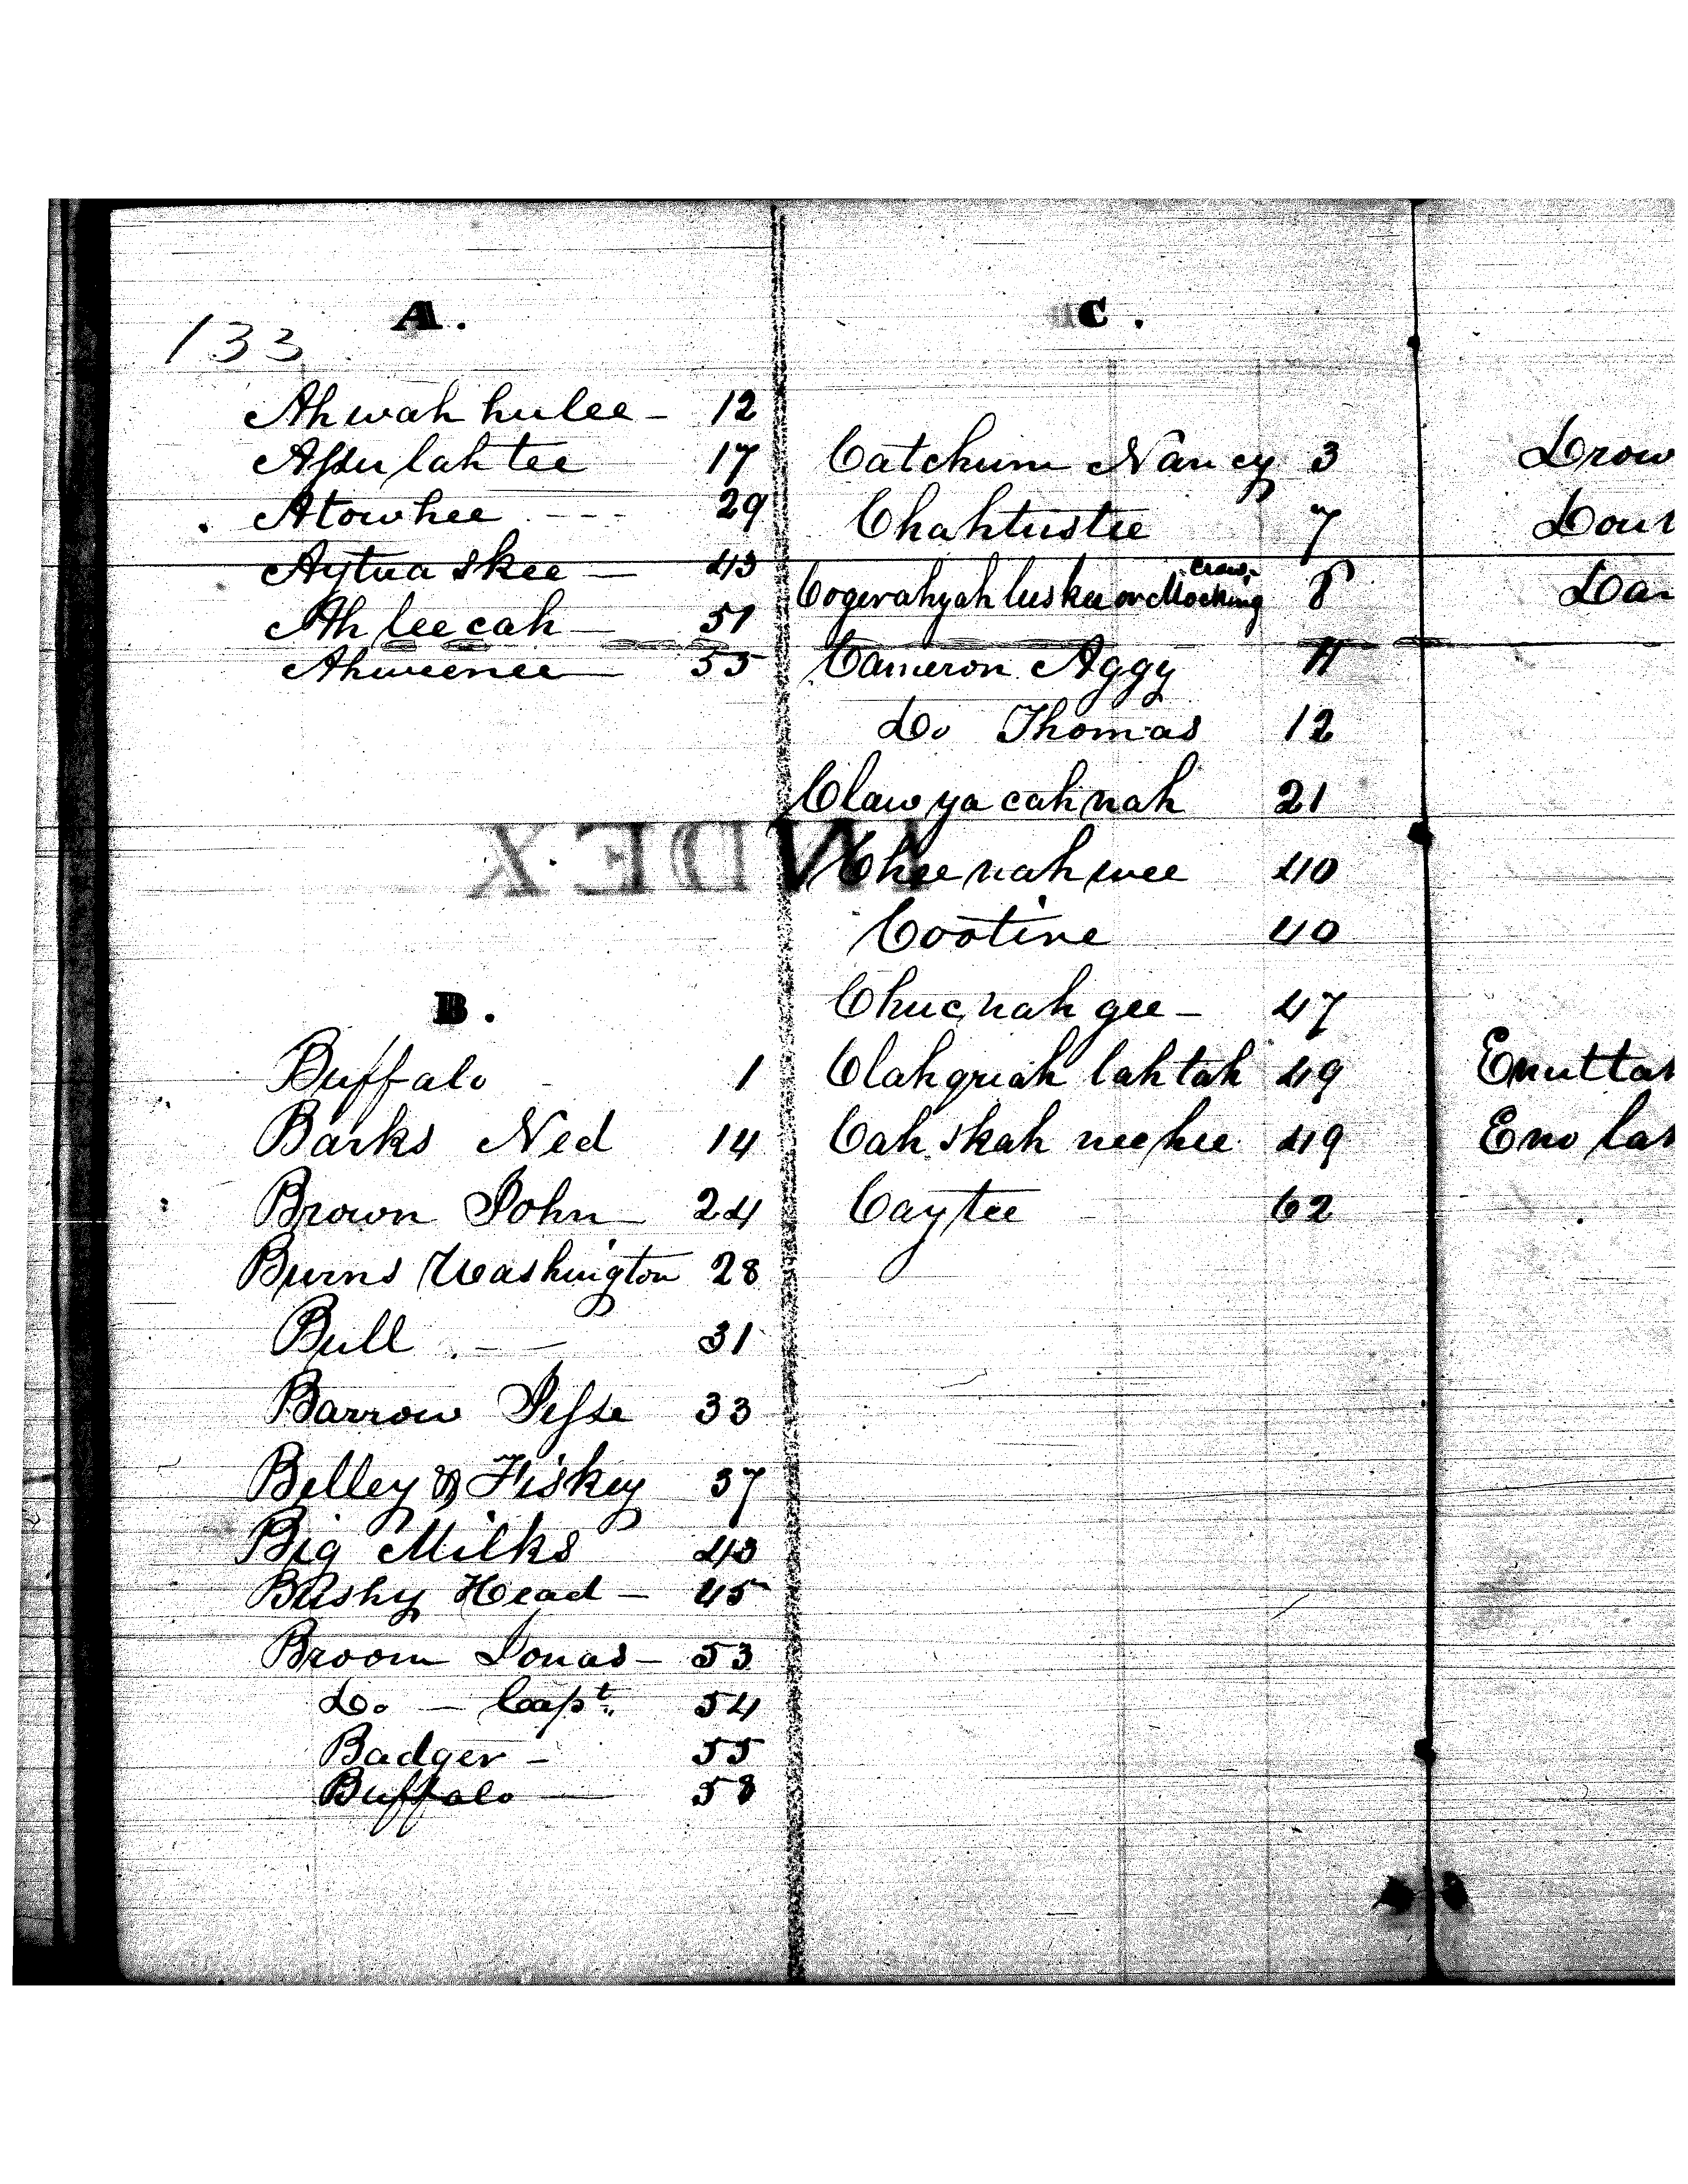 133
A.
Ah wah hu lee - 12
Assu lah tee 17
Atowhee --- 29
Aytua skee - 43
Ah lee cah - 51
Ahweenee - 55
B.
Buffalo - 1
Barks Ned 14
Brown John 24
Burns Washington 28
Bull - - 31
Barrow Jesse 33
Belley & Fiskey 37
Big Milks 43
Bushy Head - 45
Broom Jonas - 53
Do - Capt. 54
Badger - 55
Buffalo - 58
C.
Catchum Nancy 3
Chahtustee 7
crow
or Mocking 8
Cameron Aggy 11
Do Thomas 12
Claw ya cah nah 21
Chee nah wee 40
Cootine 40
Chuc nah gee - 47
Clahquah lah tah 49
Cah skah nee hee 49
Caytee 62
INDEX
Drow
Dou
Da
Enutta
Eno la